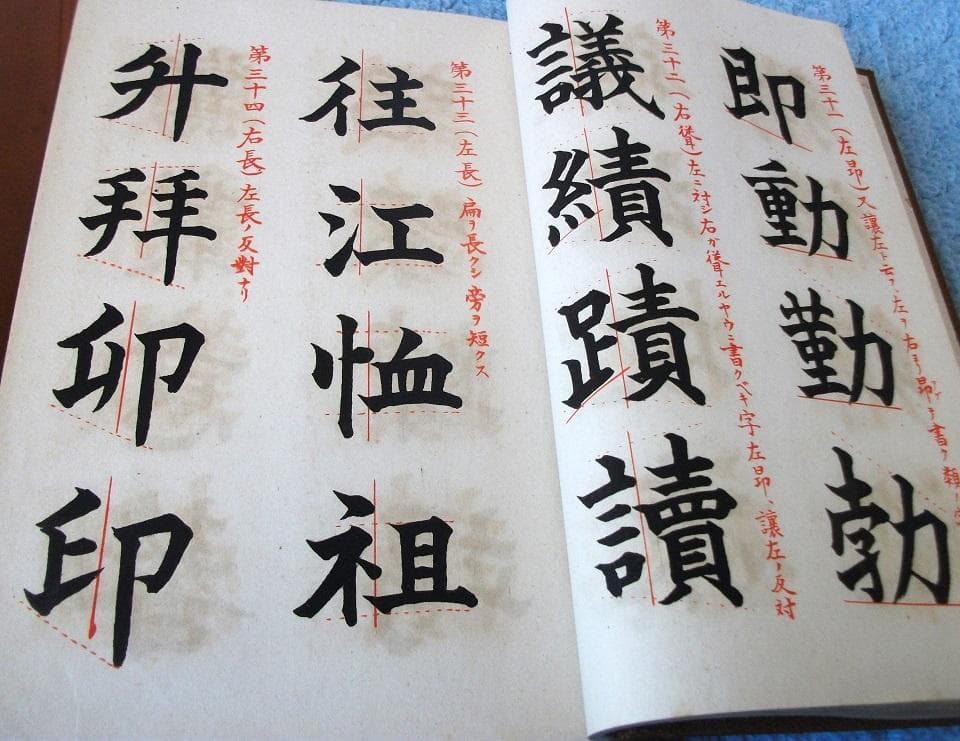 第三十一(左昂)又讓左ト云フ、左ヲ右ヨリ昂ゲテ書ク類
即動勤勃
第三十二(右聳)左ニ対シ右ガ聳エルヤウニ書クベキ字左昂、讓左ノ反対
議績蹟讀
第三十三(左長)扁ヲ長クシ旁ヲ短クス
往江恤祖
第三十四(右長)左長ノ反對ナリ
升拜卯印